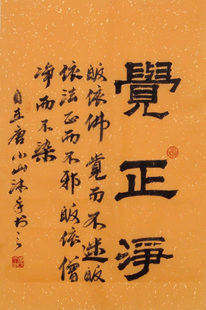 覺正淨
皈依佛覺而不迷皈
依法正而不邪皈依僧
净而不染
自在唐小山沐手书之